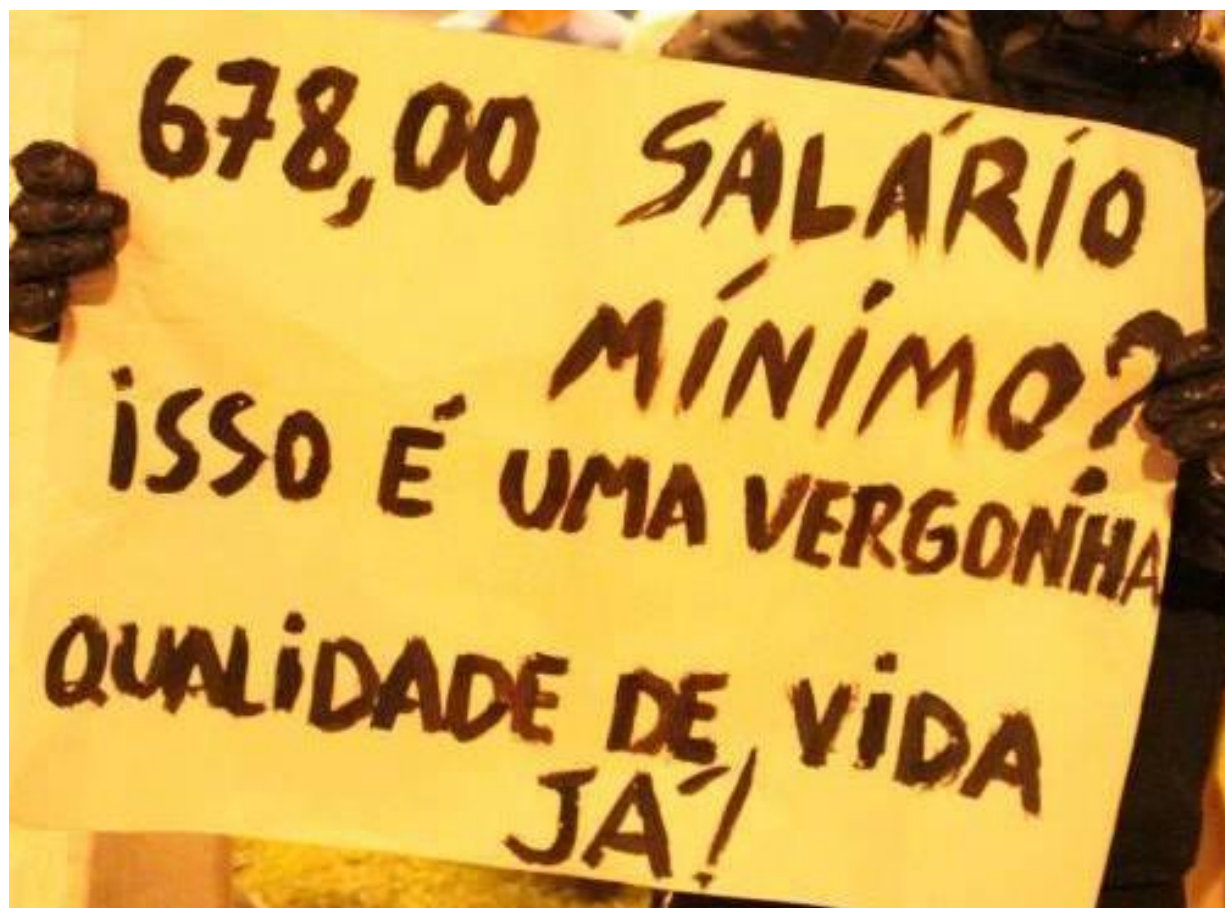 678,00 SALÁRIO
MÍNIMO?
ISSO É UMA VERGONHA
QUALIDADE DE VIDA
JÁ!